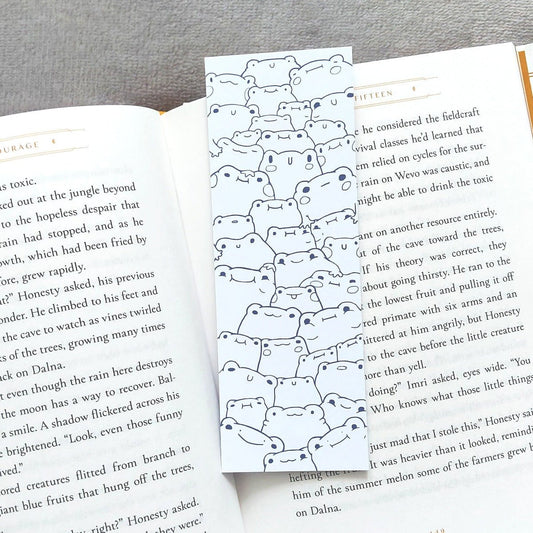 OURAGE
is toxic.
ked out at the jungle beyond
to the hopeless despair that
rain had stopped, and as he
owth, which had been fried by
fore, grew rapidly.
t?” Honesty asked, his previous
onder. He climbed to his feet and
the cave to watch as vines twirled
ks of the trees, growing many times
ack on Dalna.
t even though the rain here destroys
the moon has a way to recover. Bal-
a smile. A shadow flickered across his
e brightened. “Look, even those funny
ived.”
ored creatures flitted from branch to
giant blue fruits that hung off the trees,
ay, right?” Honesty asked.
they were.”
FIFTEEN
e he considered the fieldcraft
vival classes he’d learned that
em relied on cycles for the sur-
rain on Wevo was caustic, and
might be able to drink the toxic
ant on another resource entirely.
t of the cave toward the trees,
If his theory was correct, they
about going thirsty. He ran to the
the lowest fruit and pulling it off
ored primate with six arms and an
hittered at him angrily, but Honesty
to the cave before the little creature
ore than yell.
doing?” Imri asked, eyes wide. “You
Who knows what those little things
just mad that I stole this,” Honesty said
It was heavier than it looked, remindin
hefting the
him of the summer melon some of the farmers grew b
on Dalna.